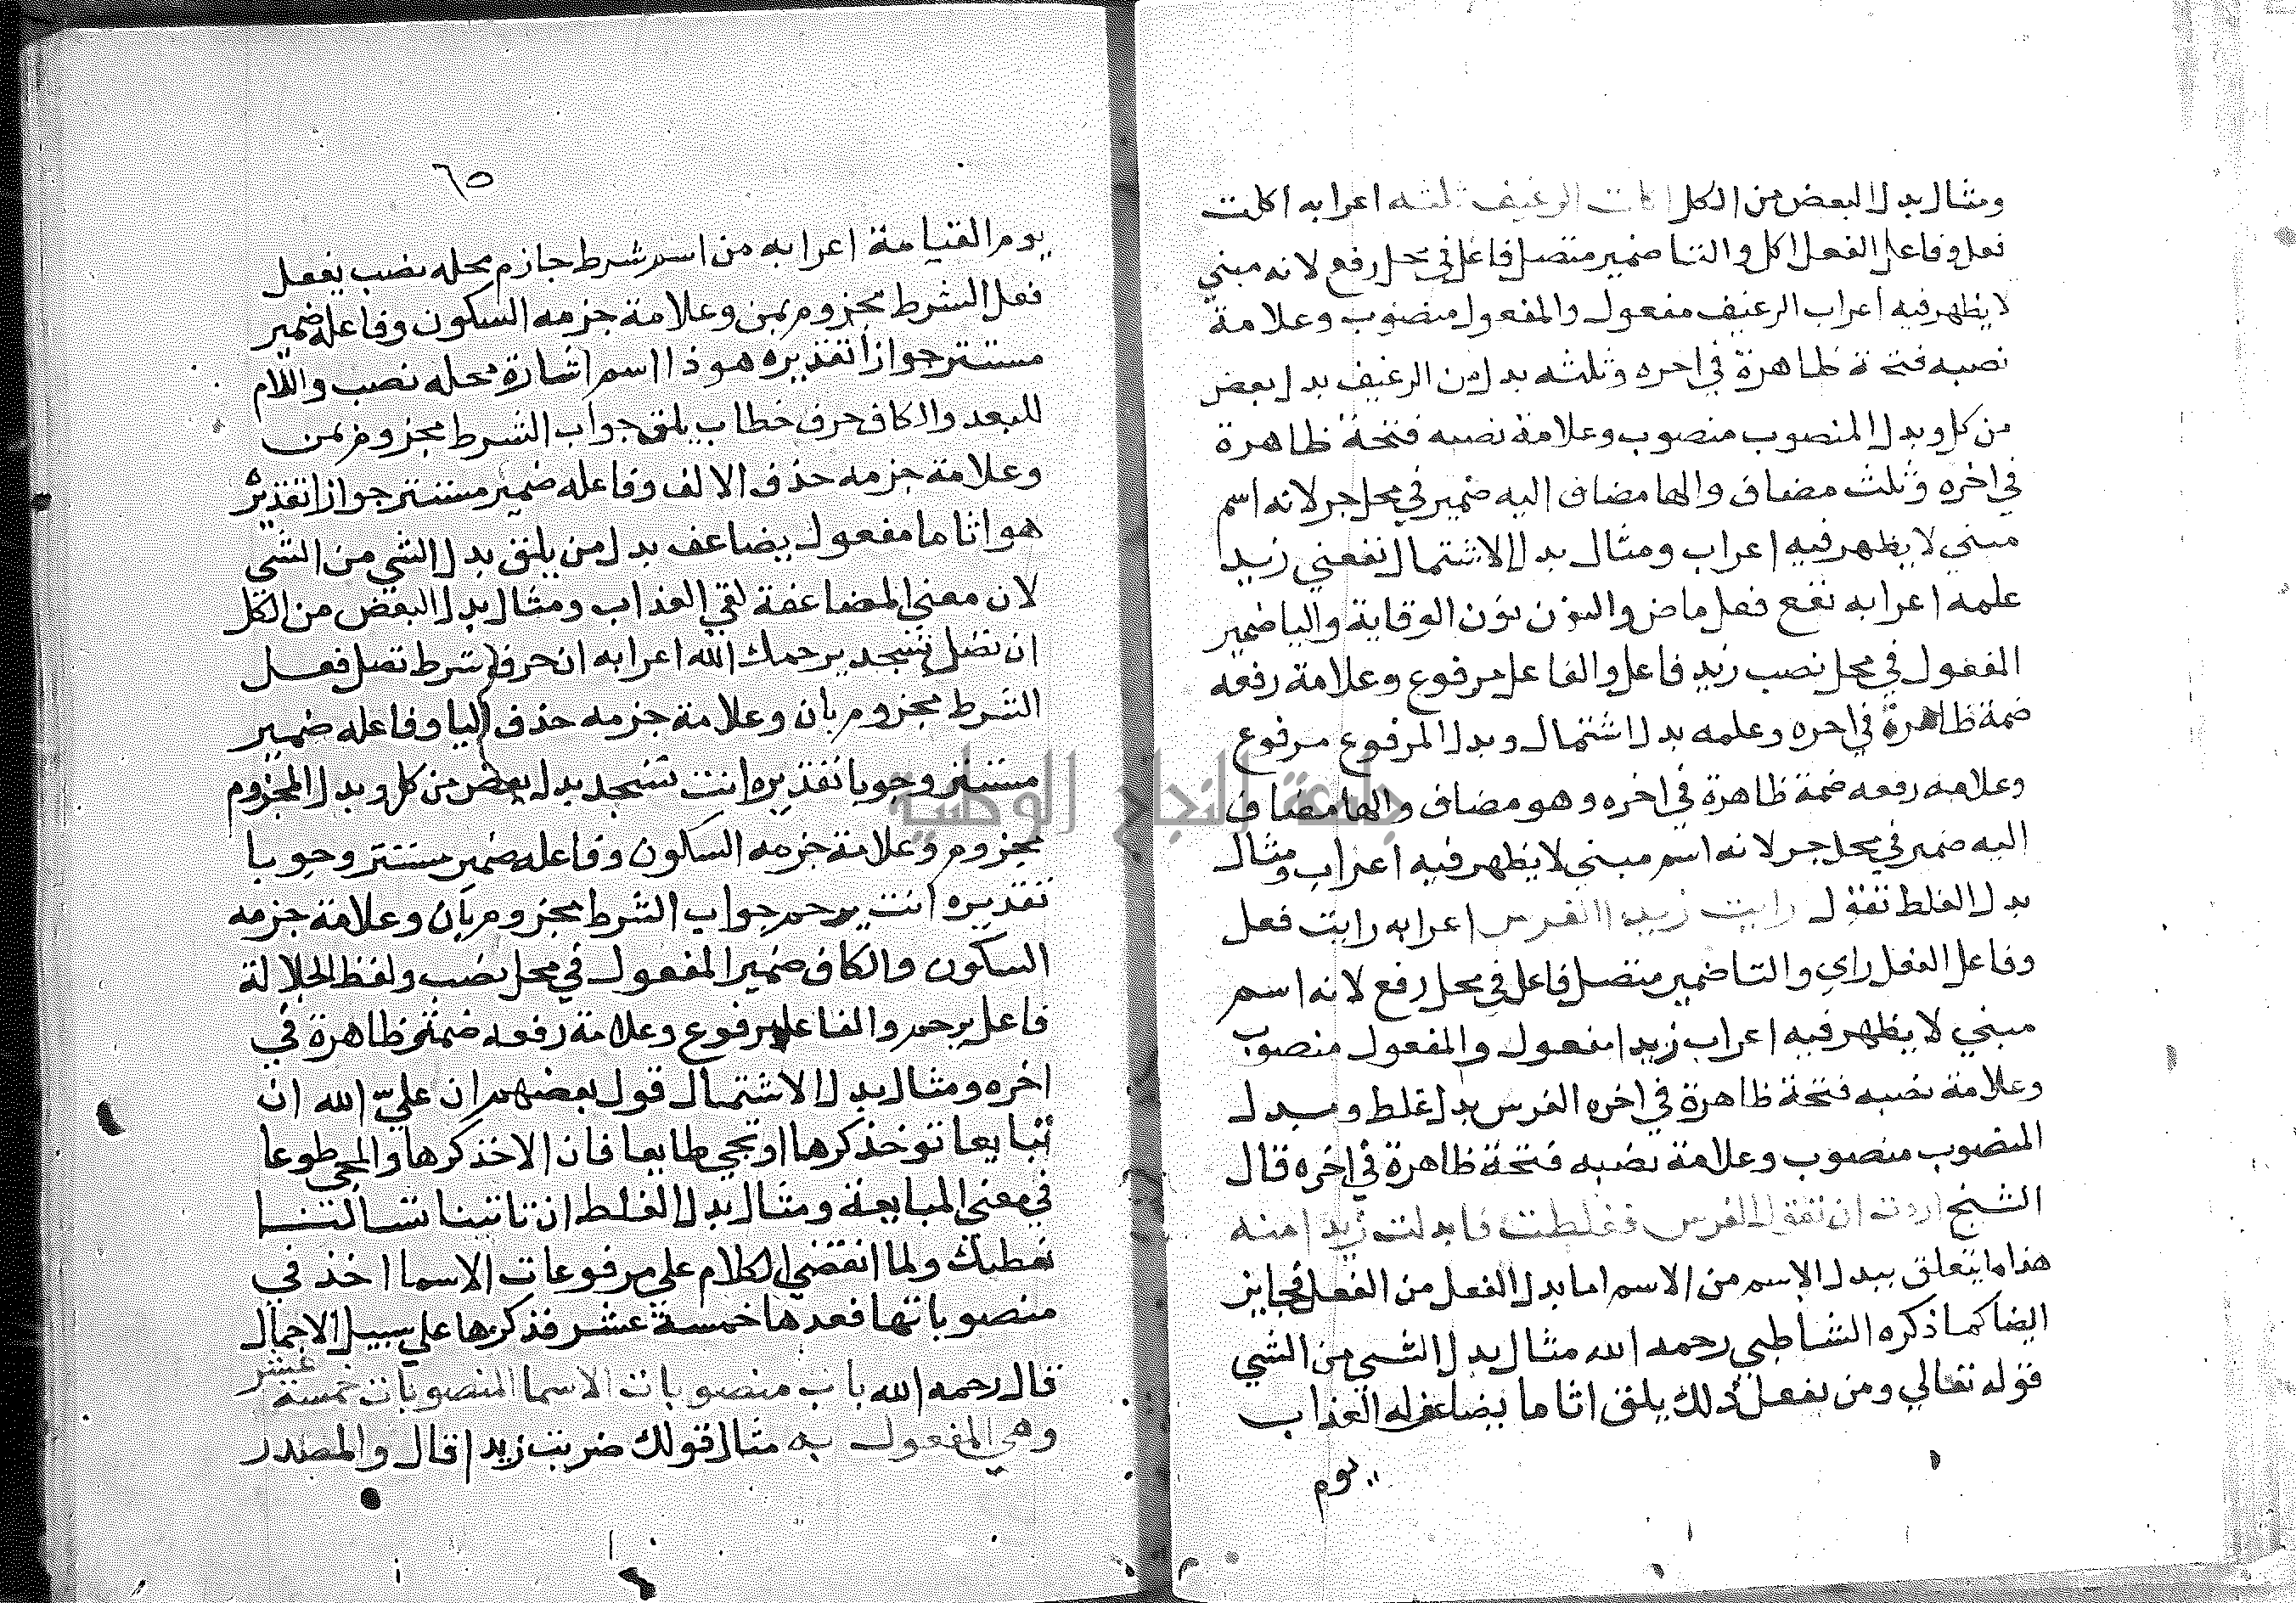 ومثال بدل البعض من الكل اكلت الرغيف ثلثه اعرابه اكلت
فعل وفاعل الفعل اكل والتا ضمير متصل فاعل في محل رفع لانه مبني
لا يظهر فيه اعراب الرغيف مفعول والمفعول منصوب وعلامة
نصبه فتحة ظاهرة في اخره وثلثه بدل من الرغيف بدل بعض
من كل وبدل المنصوب منصوب وعلامة نصبه فتحة ظاهرة
في اخره وثلث مضاف والها مضاف اليه ضمير في محل جر لانه اسم
مبني لا يظهر فيه اعراب ومثال بدل الاشتمال نفعني زيد
علمه اعرابه نفع فعل ماض والنون نون الوقاية واليا ضمير
المفعول في محل نصب زيد فاعل والفاعل مرفوع وعلامة رفعه
ضمة ظاهرة في اخره وعلمه بدل اشتمال وبدل المرفوع مرفوع
وعلامه رفعه ضمة ظاهرة في اخره وهو مضاف والها مضاف
اليه ضمير في محل جر لانه اسم مبني لا يظهر فيه اعراب ومثال
بدل الغلط تقول رايت زيدا الفرس اعرابه رايت فعل
وفاعل الفعل راي والتا ضمير متصل فاعل في محل رفع لانه اسم
مبني لا يظهر فيه اعراب زيدا مفعول والمفعول منصوب
وعلامة نصبه فتحة ظاهرة في اخره الفرس بدل غلط وبدل
المنصوب منصوب وعلامة نصبه فتحة ظاهرة في اخره قال
الشيخ اردت ان تقول الفرس فغلطت فابدلت زيدا منه
هذا ما يتعلق ببدل الاسم من الاسم اما بدل الفعل من الفعل فجايز
ايضا كما ذكره الشاطبي رحمه الله مثال بدل الشي من الشي
قوله تعالي ومن يفعل ذلك يلق اثاما يضاعف له العذاب
يوم
٦٥
يوم القيامة اعرابه من اسم شرط جازم محله نصب يفعل
فعل الشرط مجزوم بمن وعلامة جزمه السكون وفاعله ضمير
مستتر جوازا تقديره هو ذا اسم اشارة محله نصب واللام
للبعد والكاف حرف خطاب يلق جواب الشرط مجزوم بمن
وعلامة جزمه حذف الالف وفاعله ضمير مستتر جوازا تقديره
هو اثاما مفعول يضاعف بدل من يلق بدل الشي من الشي
لان معني المضاعفة لقي العذاب ومثال بدل البعض من الكل
ان تصل تسجد يرحمك الله اعرابه ان حرف شرط تصل فعل
الشرط مجزوم بان وعلامة جزمه حذف اليا وفاعله ضمير
مستتر وجوبا تقديره انت تسجد بدل بعض من كل وبدل المجزوم
مجزوم وعلامة جزمه السكون وفاعله ضمير مستتر وجوبا
تقديره انت يرحم جواب الشرط مجزوم بان وعلامة جزمه
السكون والكاف ضمير المفعول في محل نصب ولفظ الجلالة
فاعل يرحم والفاعل مرفوع وعلامة رفعه ضمة ظاهرة في
اخره ومثال بدل الاشتمال قول بعضهم ان عليّ الله ان
تبايعا توخذ كرها او تجي طايعا فان الاخذ كرها والمجي طوعا
في معني المبايعة ومثال بدل الغلط ان تاتينا تسالنا
نعطيك ولما انقضي الكلام علي مرفوعات الاسما اخذ في
منصوباتها فعدها خمسة عشر فذكرها علي سبيل الاجمال
قال رحمه الله باب منصوبات الاسما المنصوبات خمسة عشر
وهي المفعول به مثال قولك ضربت زيدا قال والمصدر
جامعة النجاح الوطنية